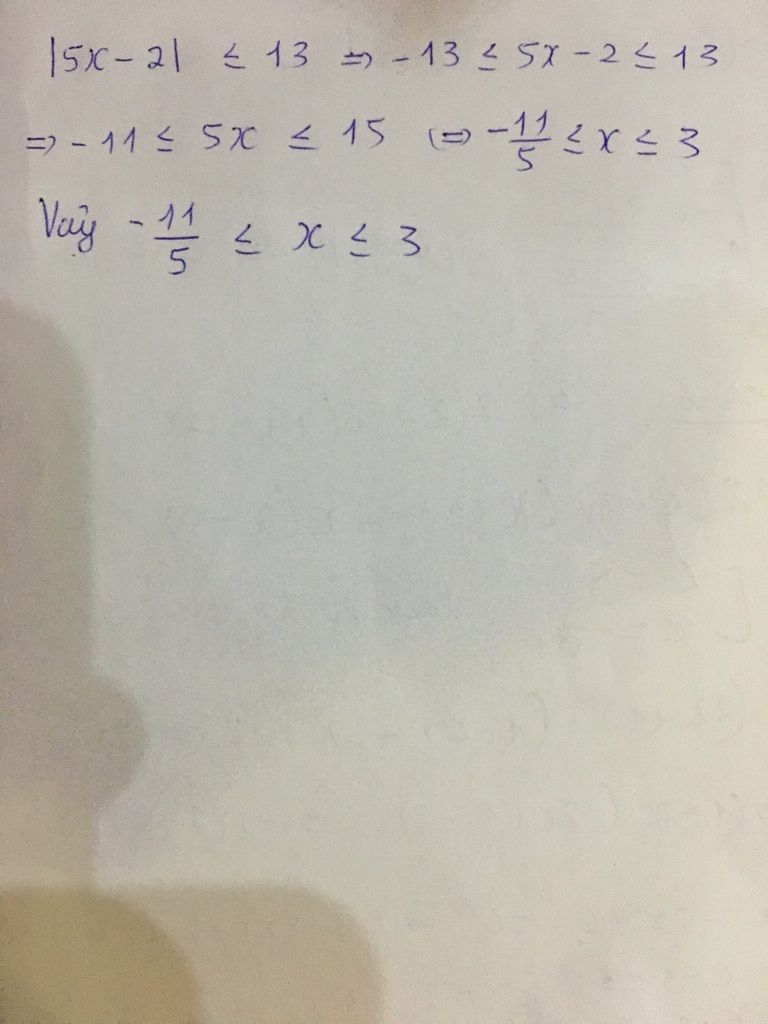 |5x - 2| ≤ 13 => - 13 ≤ 5x - 2 ≤ 13
=> - 11 ≤ 5x ≤ 15 (=> - 11/5 ≤ x ≤ 3
Vậy - 11/5 ≤ x ≤ 3